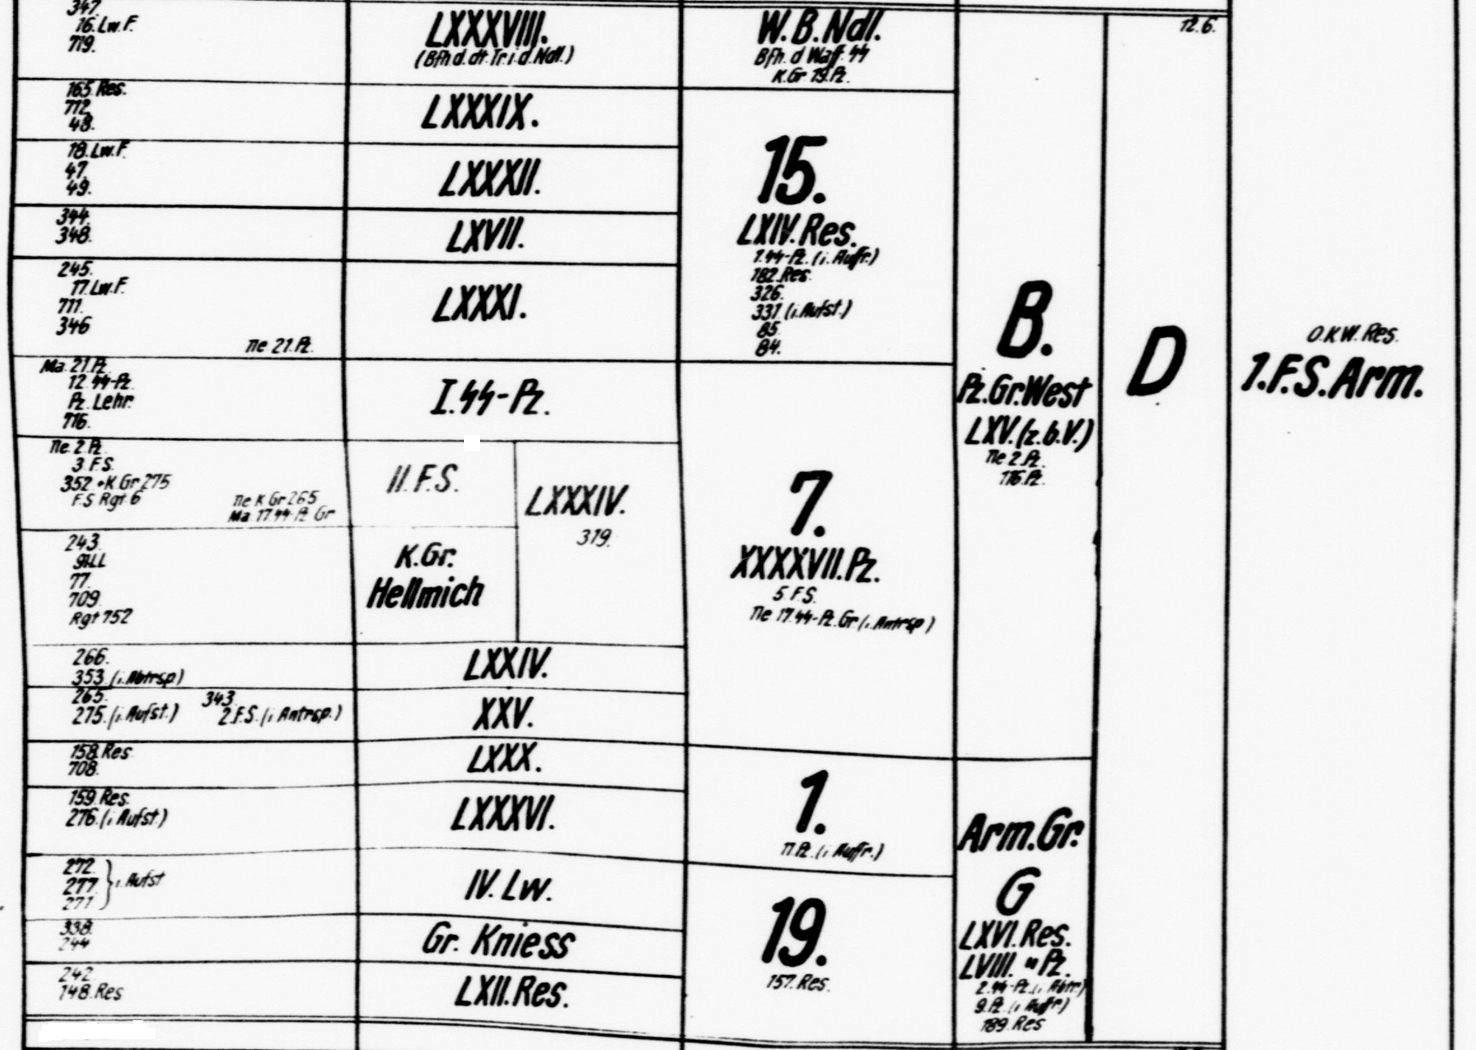 347.
16.Lw.F.
719.
LXXXVIII.
(Bfh d. dt. Tr. i. d. Ndl.)
W.B.Ndl.
Bfh. d Waff. ᛋᛋ
K.Gr 19.Pz.
12.6.
165.Res.
712.
48.
LXXXIX.
18.Lw.F.
47.
49.
LXXXII.
344.
348.
LXVII.
245.
17.Lw.F.
711.
346
Tle 21.Pz.
LXXXI.
15.
LXIV.Res.
1.ᛋᛋ-Pz. (i. Auffr.)
182.Res.
326.
331 (i. Aufst.)
85.
84.
Ma. 21.Pz.
12.ᛋᛋ-Pz.
Pz. Lehr.
716.
I.ᛋᛋ-Pz.
Tle 2.Pz.
3.F.S.
352 + K.Gr 275
F.S Rgt 6
Tle K.Gr 265
Ma 17 ᛋᛋ-Pz Gr
II.F.S.
LXXXIV.
319.
243.
91.LL
77.
709.
Rgt 752
K.Gr.
Hellmich
7.
XXXXVII.Pz.
5.F.S.
Tle 17.ᛋᛋ-Pz.Gr (i. Antrsp)
266.
353. (i. Abtrsp)
LXXIV.
265.
343.
275. (i. Aufst.)
2.F.S. (i Antrsp.)
XXV.
B.
Pz.Gr.West
LXV.(z.b.V.)
Tle 2.Pz.
116.Pz.
D
O.K.W. Res.
1.F.S.Arm.
158.Res
708.
LXXX.
159.Res.
276. (i Aufst.)
LXXXVI.
1.
11.Pz. (i Auffr.)
272.
277.
271
i. Aufst
IV. Lw.
338.
244
Gr. Kniess
242.
148.Res
LXII.Res.
19.
157.Res.
Arm.Gr.
G
LXVI.Res.
LVIII. " Pz.
2.ᛋᛋ-Pz. (i Abtr)
9.Pz. (i Auffr)
189.Res